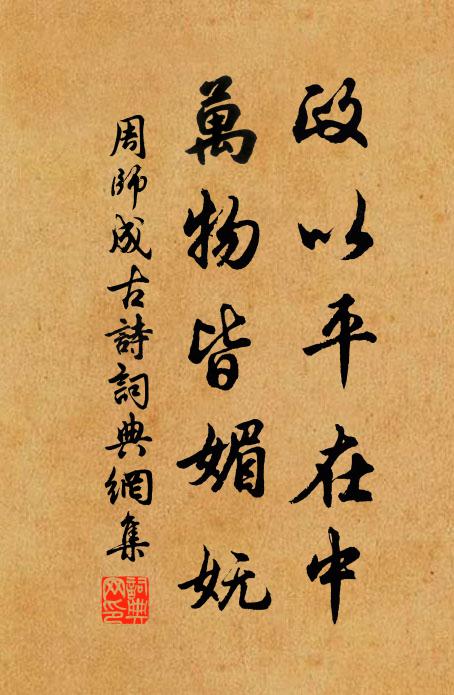 政以平在中
萬物皆媚妩
周師成古詩詞典網集
詞典
网印